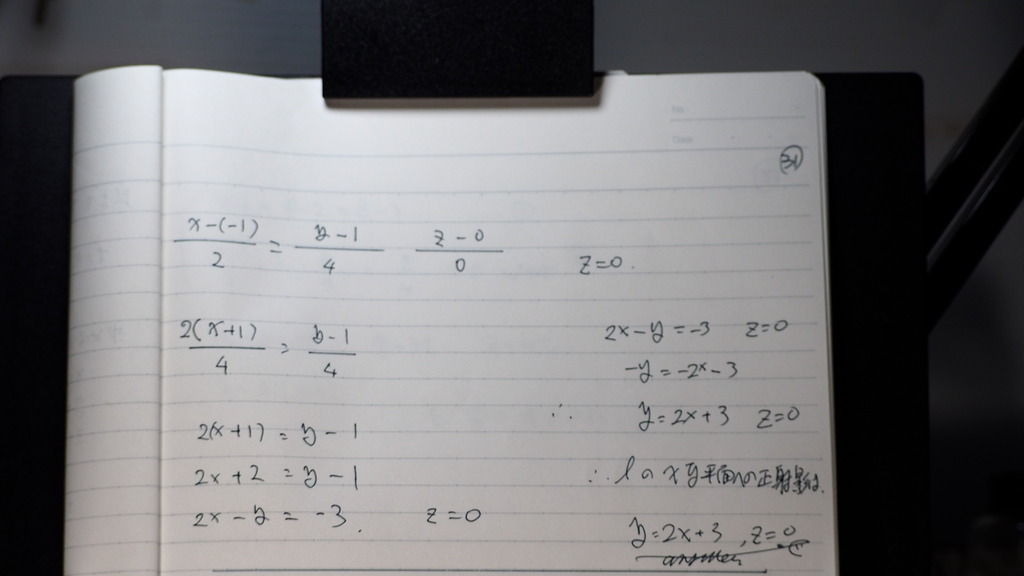 No.
Date
31
x-(-1)/2 = y-1/4 z-0/0 z=0.
2(x+1)/4 = y-1/4
2(x+1) = y-1
2x+2 = y-1
2x-y = -3. z=0
2x-y=-3 z=0
-y=-2x-3
∴ y=2x+3 z=0
∴ lのxy平面への正射影は.
y=2x+3, z=0
answer